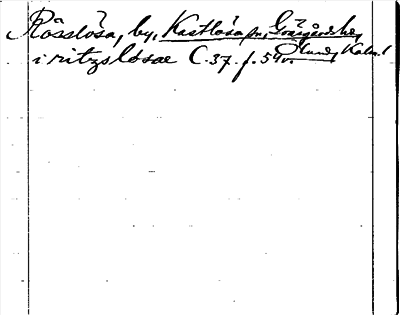 Rösslösa, by, Kastlösa sn, Gräsgårds hd,
Öland, Kalm. l
i ritzslösae C. 37. f. 54v.